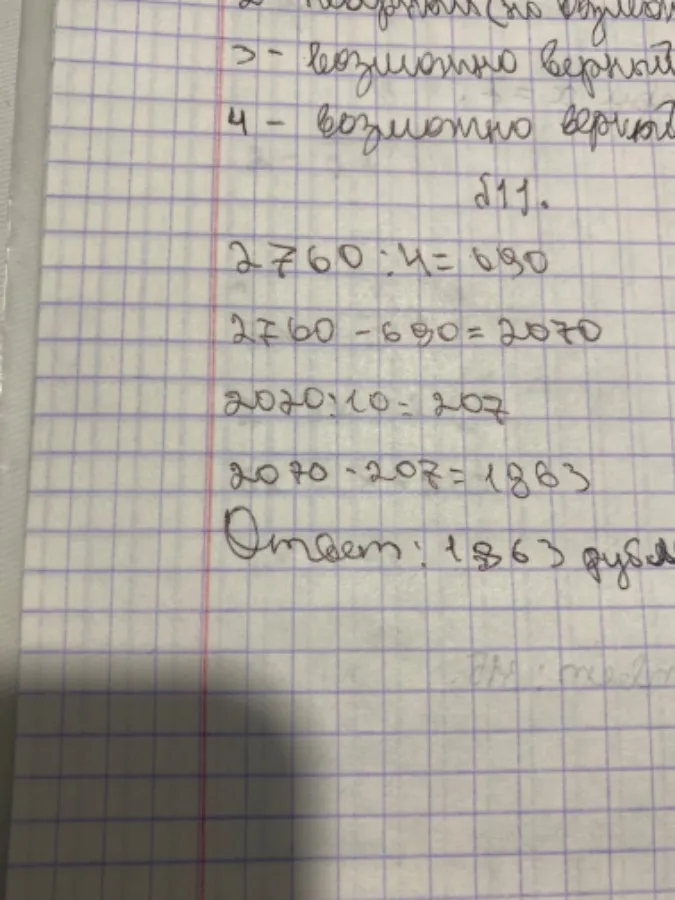 3 - возможно верный
4 - возможно верный
№11.
2760 : 4 = 690
2760 - 690 = 2070
2070 : 10 = 207
2070 - 207 = 1863
Ответ: 1863 рубля